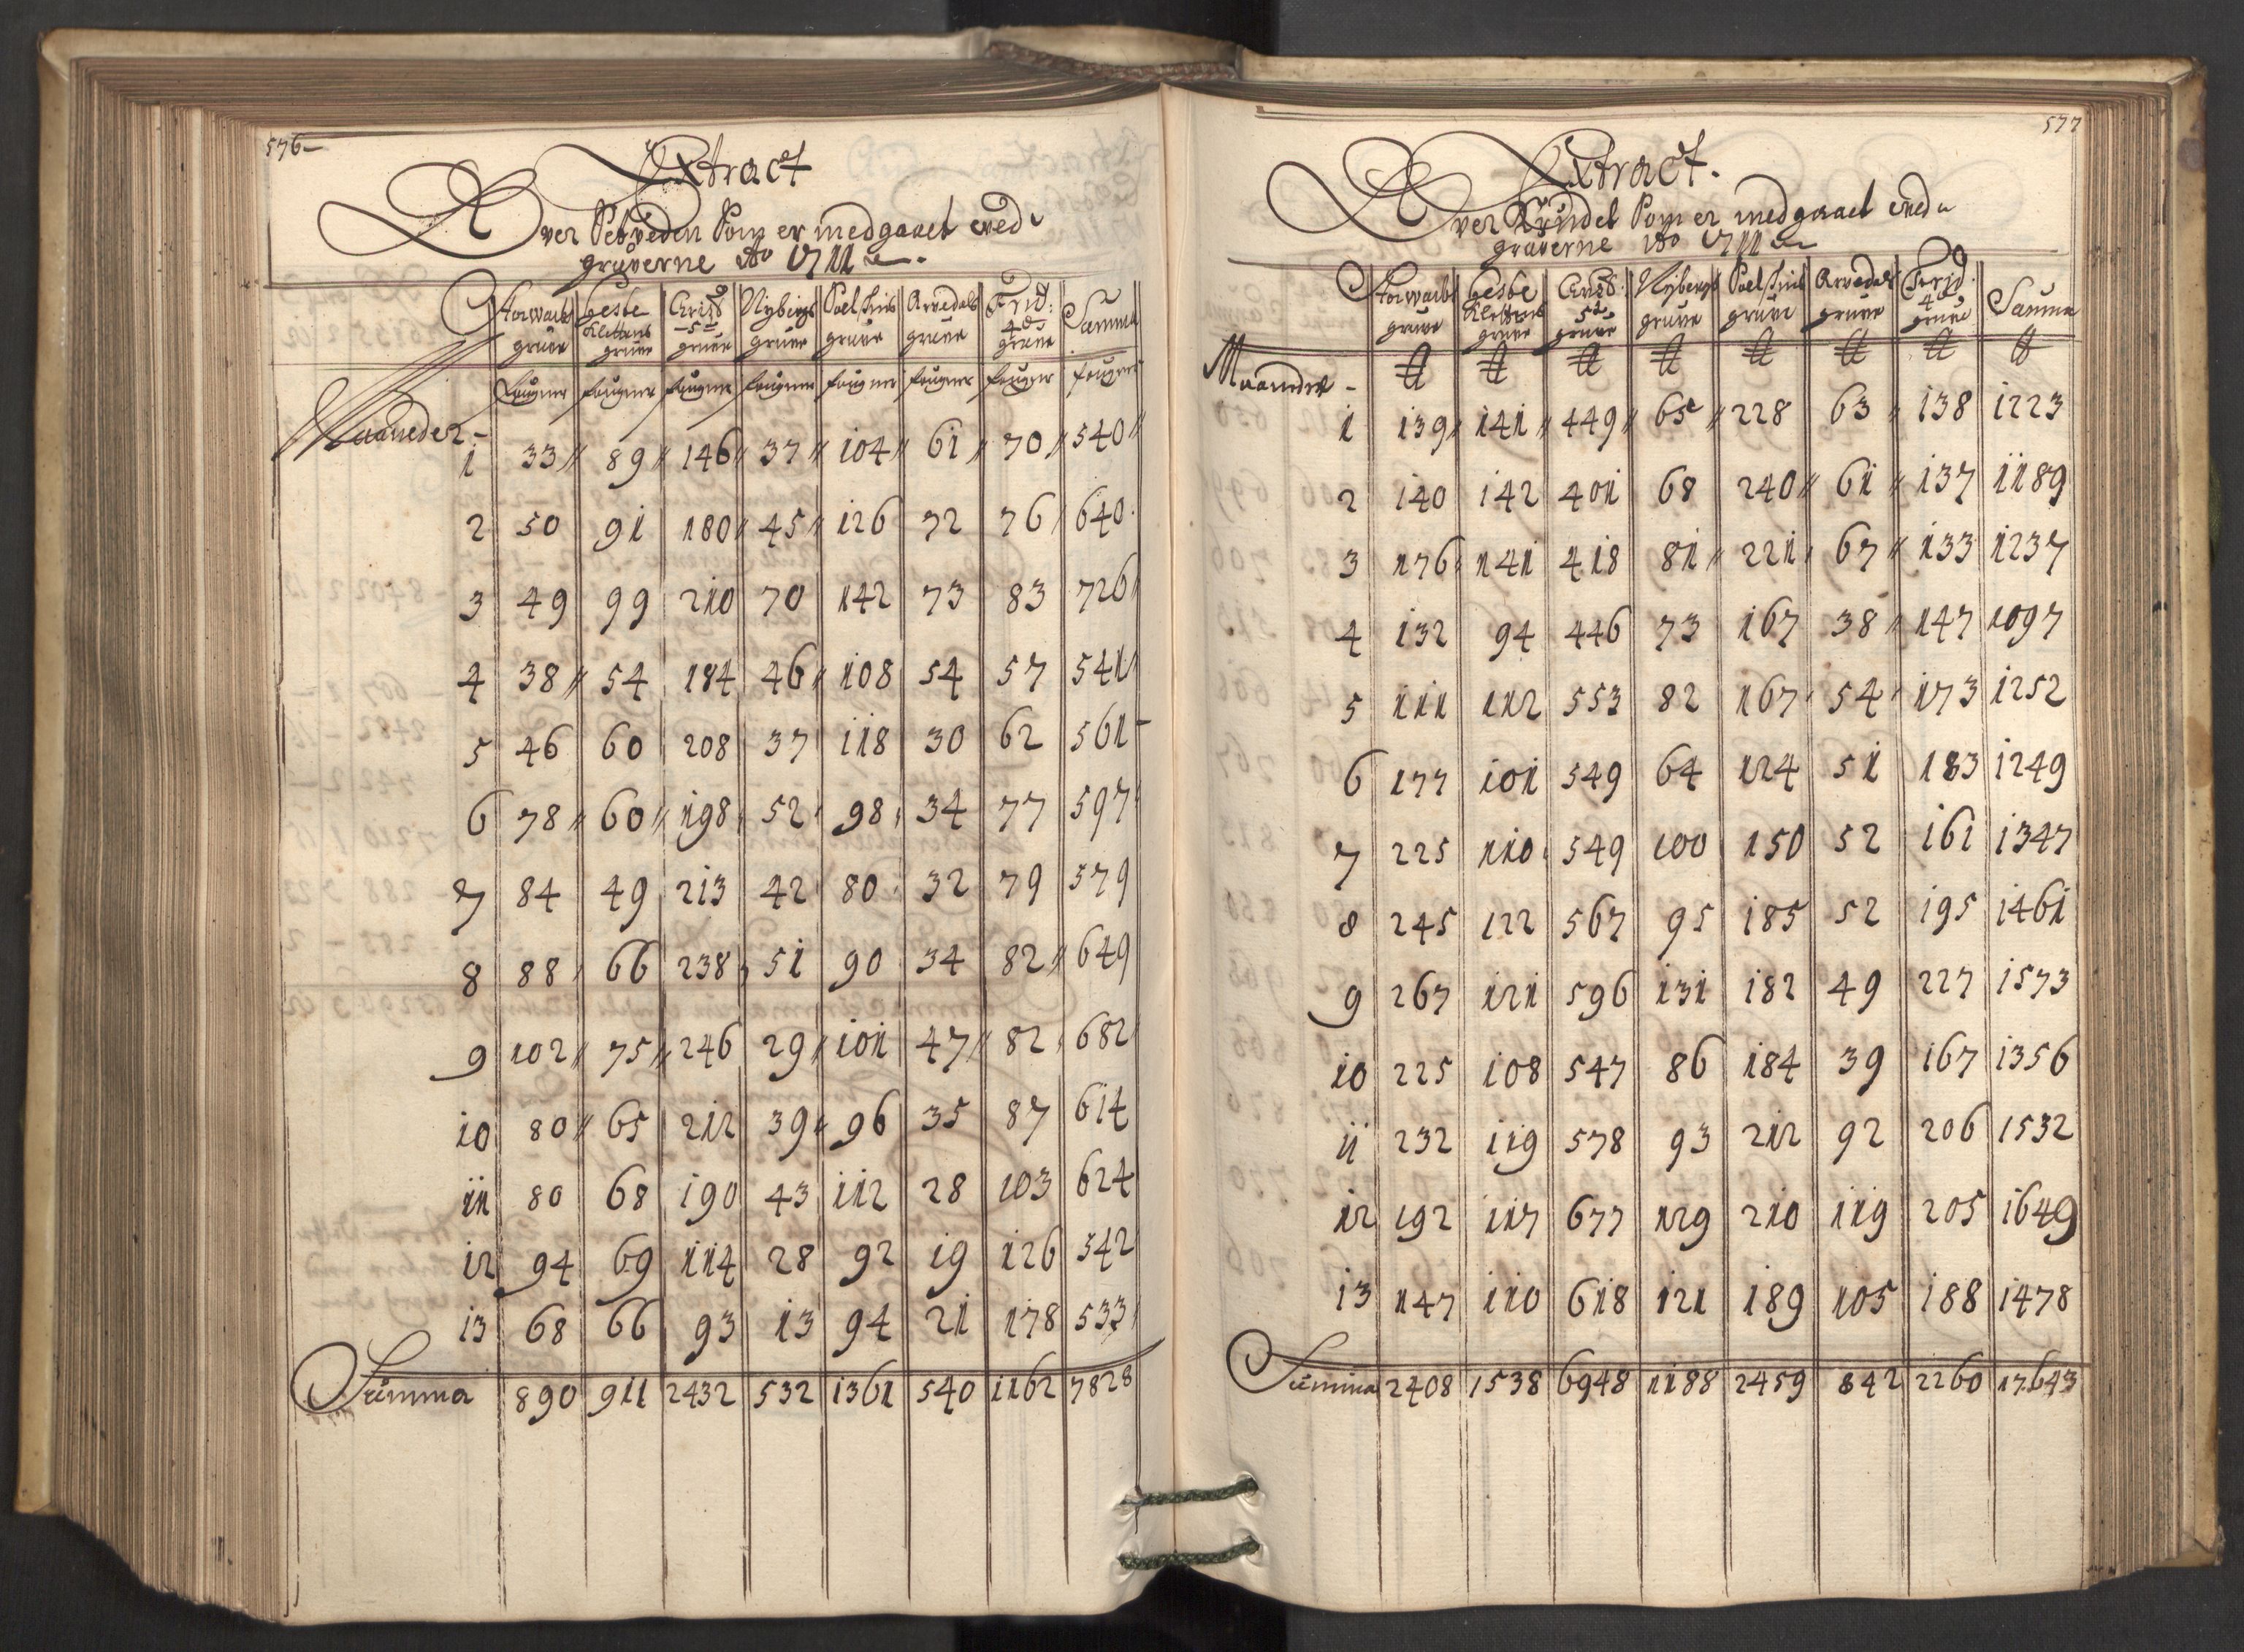 576
Extract
Over Setveden Som er medgaaet ved
gruverne Ao 1711
Storwarts gruve | Gesbe Klettens gruve | Crist: 5te gruve | Nybergs gruve | Poel Hus gruve | Arvedals gruve | Frid: 4des gruve | Summa
faugner | faugner | faugner | faugner | faugner | faugner | faugner | faugner
Maaneder
1 33 89 146 37 104 61 70 540
2 50 91 180 45 126 72 76 640
3 49 99 210 70 142 73 83 726
4 38 54 184 46 108 54 57 541
5 46 60 208 37 118 30 62 561
6 78 60 198 52 98 34 77 597
7 84 49 213 42 80 32 79 579
8 88 66 238 51 90 34 82 649
9 102 75 246 29 101 47 82 682
10 80 65 212 39 96 35 87 614
11 80 68 190 43 112 28 103 624
12 94 69 114 28 92 19 126 542
13 68 66 93 13 94 21 178 533
Summa 890 911 2432 532 1361 540 1162 7828
577
Extract.
Over Krudet Som er medgaaet ved
gruverne Ao 1711
Storwarts gruve | Gesbe Klettens gruve | Crist: 5te gruve | Nybergs gruve | Poel Hus gruve | Arvedals gruve | Frid: 4des gruve | Summa
℔ ℔ ℔ ℔ ℔ ℔ ℔ ℔
Maaneder
1 139 141 449 65 228 63 138 1223
2 140 142 401 68 240 61 137 1189
3 176 141 418 81 221 67 133 1237
4 132 94 446 73 167 38 147 1097
5 111 112 553 82 167 54 173 1252
6 177 101 549 64 124 51 183 1249
7 225 110 549 100 150 52 161 1347
8 245 122 567 95 185 52 195 1461
9 267 121 596 131 182 49 227 1573
10 225 108 547 86 184 39 167 1356
11 232 119 578 93 212 92 206 1532
12 192 117 677 129 210 119 205 1649
13 147 110 618 121 189 105 188 1478
Summa 2408 1538 6948 1188 2459 842 2260 17643